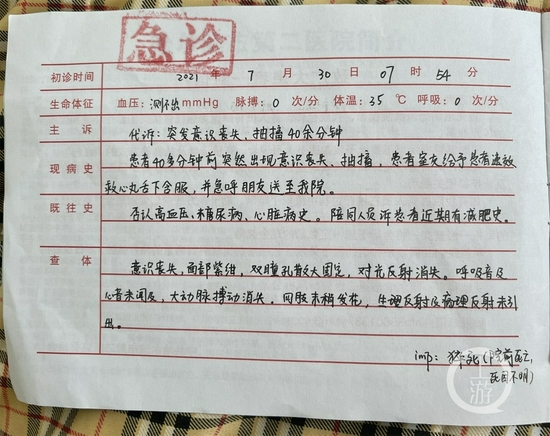 急诊
初诊时间 2021 年 7 月 30 日 07 时 54 分
生命体征 血压: 测不出 mmHg 脉搏: 0 次/分 体温: 35 ℃ 呼吸: 0 次/分
主诉 代诉: 突发意识丧失、抽搐40余分钟
现病史 患者40多分钟前突然出现意识丧失、抽搐, 患者室友给予患者速效
救心丸舌下含服, 并急呼朋友送至我院。
既往史 否认高血压、糖尿病、心脏病史。陪同人员诉患者近期有减肥史。
查体 意识丧失, 面部紫绀, 双瞳孔散大固定, 对光反射消失。呼吸音及
心音未闻及, 大动脉搏动消失。四肢末梢发花, 生理反射及病理反射未引
出。
imp: 猝死(院前死亡,
死因不明)
上游